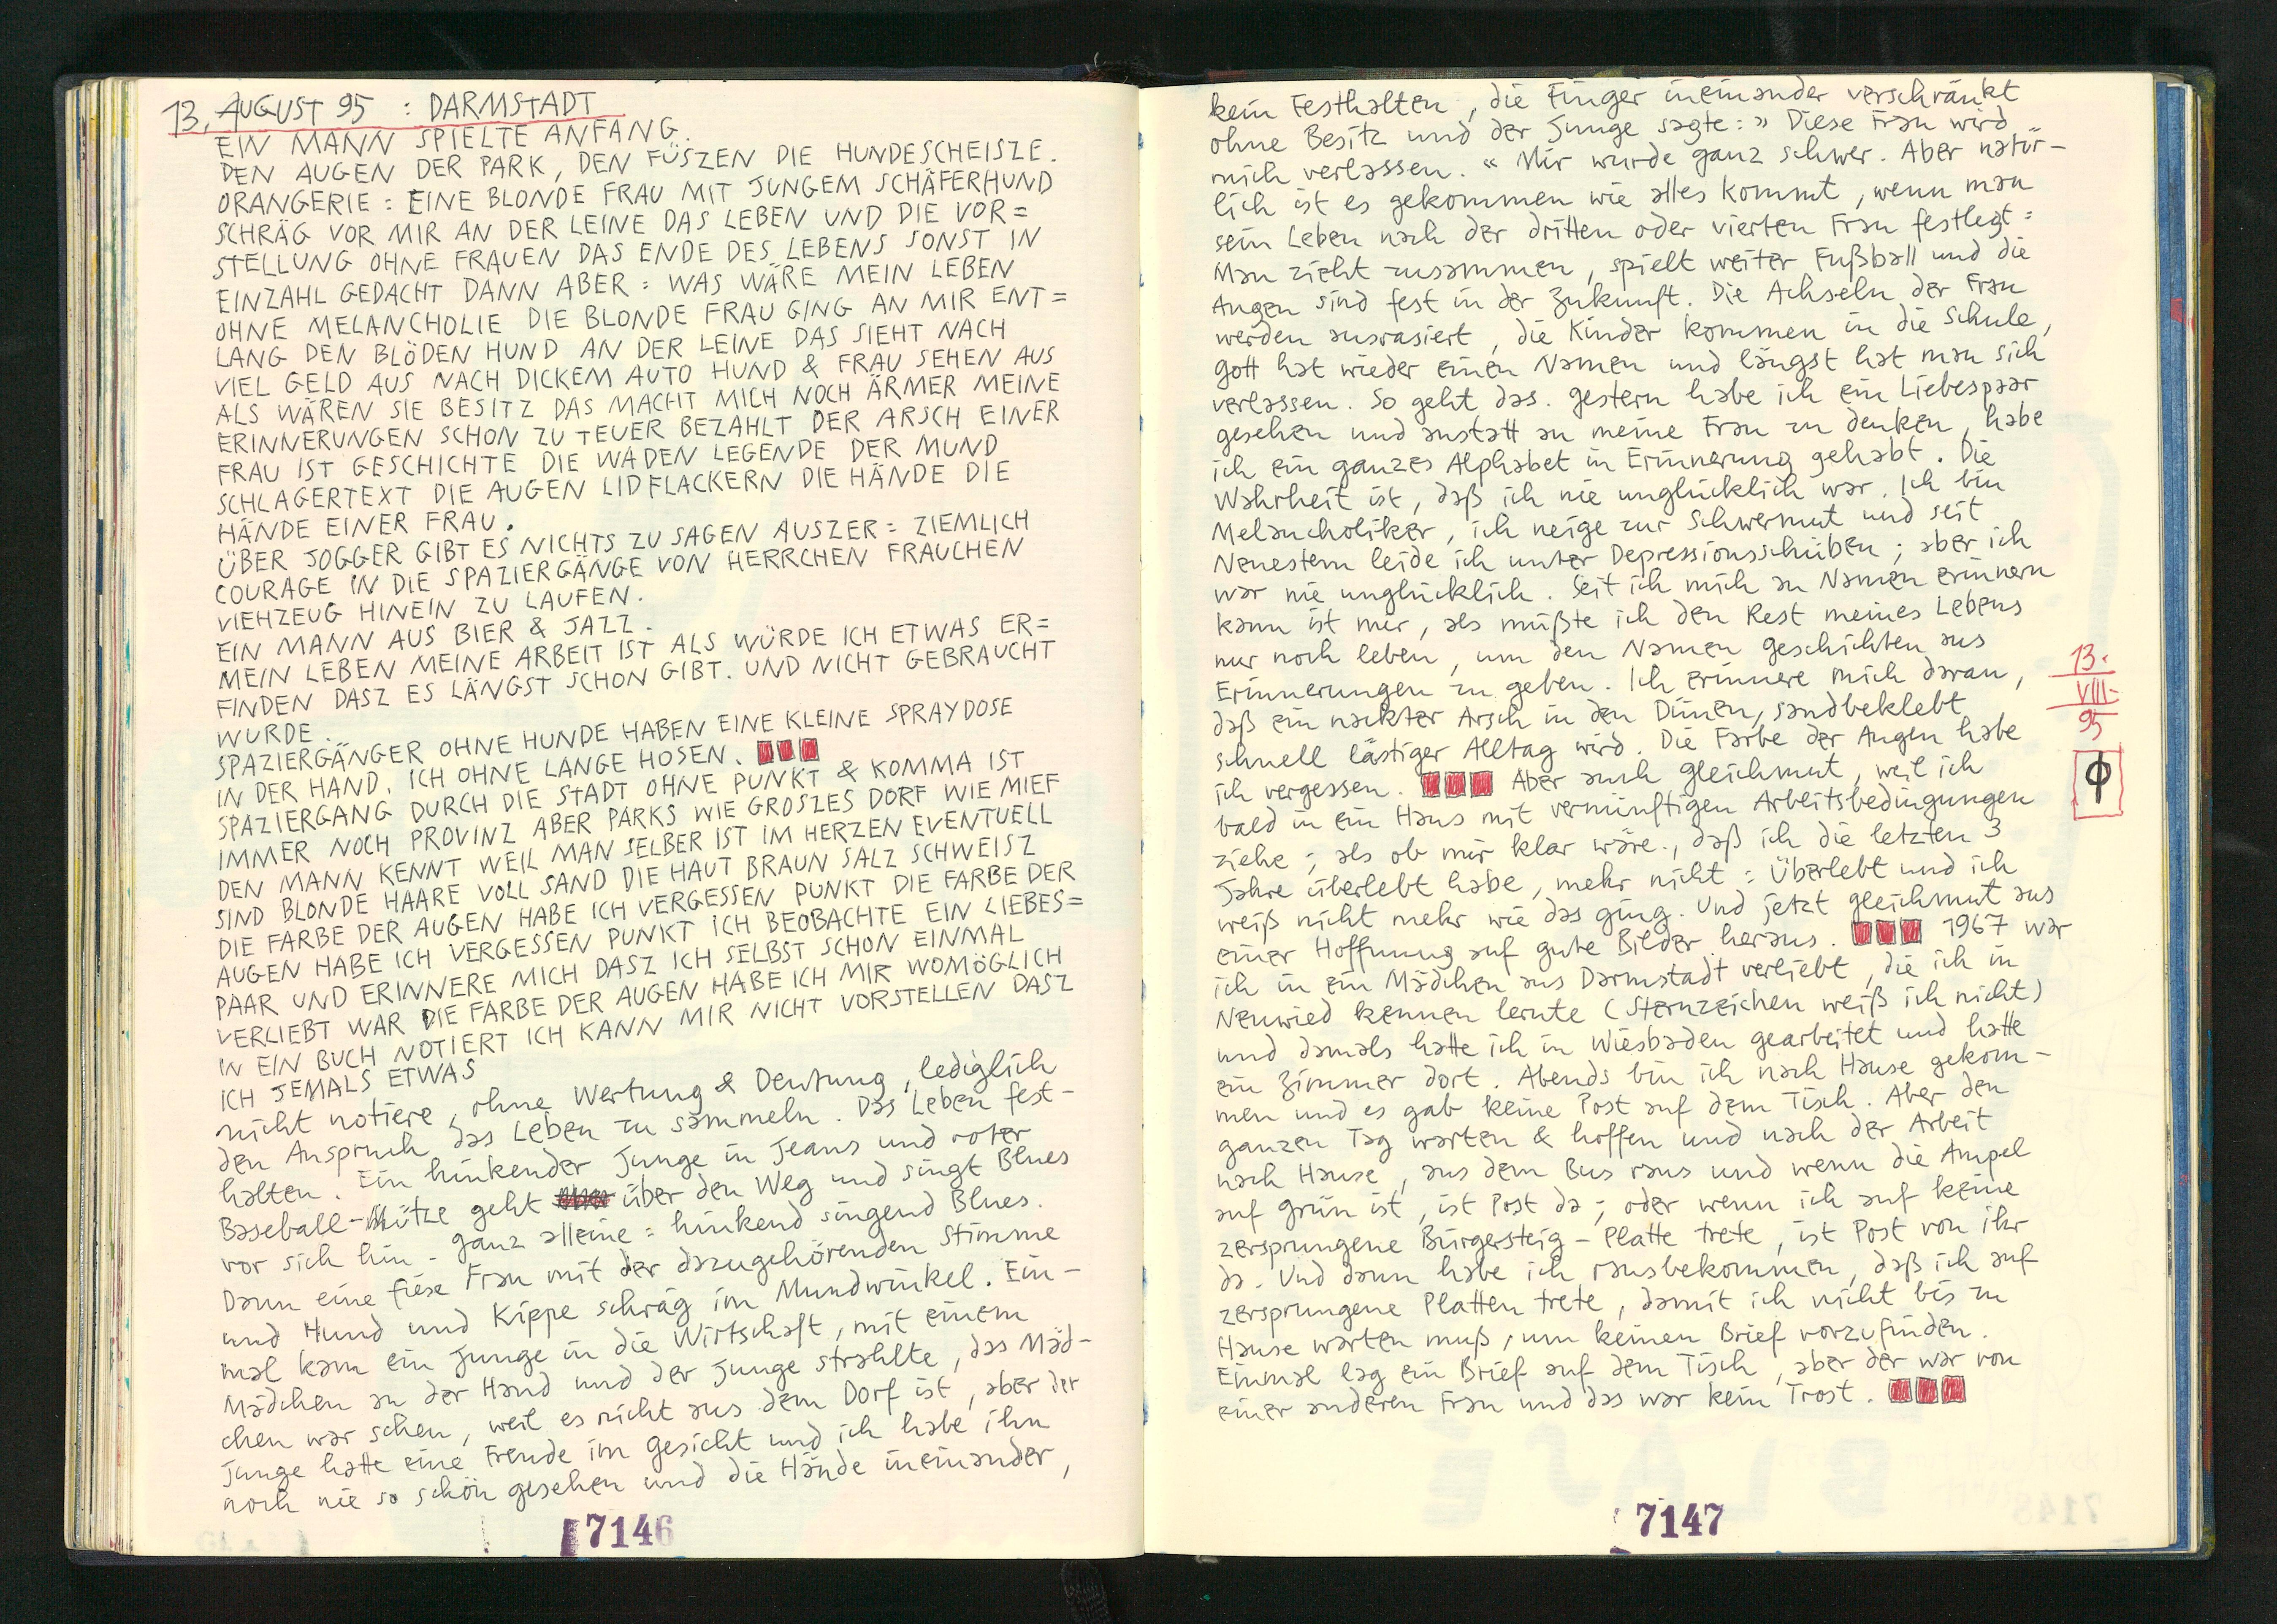 13. AUGUST 95 : DARMSTADT
EIN MANN SPIELTE ANFANG.
DEN AUGEN DER PARK, DEN FÜSZEN DIE HUNDESCHEISZE.
ORANGERIE : EINE BLONDE FRAU MIT JUNGEM SCHÄFERHUND
SCHRÄG VOR MIR AN DER LEINE DAS LEBEN UND DIE VOR=
STELLUNG OHNE FRAUEN DAS ENDE DES LEBENS SONST IN
EINZAHL GEDACHT DANN ABER : WAS WÄRE MEIN LEBEN
OHNE MELANCHOLIE DIE BLONDE FRAU GING AN MIR ENT=
LANG DEN BLÖDEN HUND AN DER LEINE DAS SIEHT NACH
VIEL GELD AUS NACH DICKEM AUTO HUND & FRAU SEHEN AUS
ALS WÄREN SIE BESITZ DAS MACHT MICH NOCH ÄRMER MEINE
ERINNERUNGEN SCHON ZU TEUER BEZAHLT DER ARSCH EINER
FRAU IST GESCHICHTE DIE WADEN LEGENDE DER MUND
SCHLAGERTEXT DIE AUGEN LIDFLACKERN DIE HÄNDE DIE
HÄNDE EINER FRAU.
ÜBER JOGGER GIBT ES NICHTS ZU SAGEN AUSZER = ZIEMLICH
COURAGE IN DIE SPAZIERGÄNGE VON HERRCHEN FRAUCHEN
VIEHZEUG HINEIN ZU LAUFEN.
EIN MANN AUS BIER & JAZZ.
MEIN LEBEN MEINE ARBEIT IST ALS WÜRDE ICH ETWAS ER=
FINDEN DASZ ES LÄNGST SCHON GIBT. UND NICHT GEBRAUCHT
WURDE.
SPAZIERGÄNGER OHNE HUNDE HABEN EINE KLEINE SPRAYDOSE
IN DER HAND. ICH OHNE LANGE HOSEN.
SPAZIERGANG DURCH DIE STADT OHNE PUNKT & KOMMA IST
IMMER NOCH PROVINZ ABER PARKS WIE GROSZES DORF WIE MIEF
DEN MANN KENNT WEIL MAN SELBER IST IM HERZEN EVENTUELL
SIND BLONDE HAARE VOLL SAND DIE HAUT BRAUN SALZ SCHWEISZ
DIE FARBE DER AUGEN HABE ICH VERGESSEN PUNKT DIE FARBE DER
AUGEN HABE ICH VERGESSEN PUNKT ICH BEOBACHTE EIN LIEBES=
PAAR UND ERINNERE MICH DASZ ICH SELBST SCHON EINMAL
VERLIEBT WAR DIE FARBE DER AUGEN HABE ICH MIR WOMÖGLICH
IN EIN BUCH NOTIERT ICH KANN MIR NICHT VORSTELLEN DASZ
ICH JEMALS ETWAS
nicht notiere, ohne Wertung & Deutung, lediglich
den Anspruch das Leben zu sammeln. Das Leben fest-
halten. Ein hinkender Junge in Jeans und roter
Baseball-Mütze geht über den Weg und singt Blues
vor sich hin - ganz alleine : hinkend singend Blues.
Dann eine fiese Frau mit der dazugehörenden Stimme
und Hund und Kippe schräg im Mundwinkel. Ein-
mal kam ein Junge in die Wirtschaft, mit einem
Mädchen an der Hand und der Junge strahlte, das Mäd-
chen war scheu, weil es nicht aus dem Dorf ist, aber der
Junge hatte eine Freude im Gesicht und ich habe ihn
noch nie so schön gesehen und die Hände ineinander,
7146
kein Festhalten, die Finger ineinander verschränkt
ohne Besitz und der Junge sagte : » Diese Frau wird
mich verlassen. « Mir wurde ganz schwer. Aber natür-
lich ist es gekommen wie alles kommt, wenn man
sein Leben nach der dritten oder vierten Frau festlegt :
Man zieht zusammen, spielt weiter Fußball und die
Augen sind fest in der Zukunft. Die Achseln der Frau
werden ausrasiert, die Kinder kommen in die Schule,
Gott hat wieder einen Namen und längst hat man sich
verlassen. So geht das. Gestern habe ich ein Liebespaar
gesehen und anstatt an meine Frau zu denken, habe
ich ein ganzes Alphabet in Erinnerung gehabt. Die
Wahrheit ist, daß ich nie unglücklich war. Ich bin
Melancholiker, ich neige zur Schwermut und seit
Neuestem leide ich unter Depressionsschüben ; aber ich
war nie unglücklich. Seit ich mich an Namen erinnern
kann ist mir, als müßte ich den Rest meines Lebens
nur noch leben, um den Namen Geschichten aus
Erinnerungen zu geben. Ich erinnere mich daran,
daß ein nackter Arsch in den Dünen, sandbeklebt
schnell lästiger Alltag wird. Die Farbe der Augen habe
ich vergessen. Aber auch Gleichmut, weil ich
bald in ein Haus mit vernünftigen Arbeitsbedingungen
ziehe ; als ob mir klar wäre, daß ich die letzten 3
Jahre überlebt habe, mehr nicht : Überlebt und ich
weiß nicht mehr wie das ging. Und jetzt Gleichmut aus
einer Hoffnung auf gute Bilder heraus. 1967 war
ich in ein Mädchen aus Darmstadt verliebt, die ich in
Neuwied kennen lernte (Sternzeichen weiß ich nicht)
und damals hatte ich in Wiesbaden gearbeitet und hatte
ein Zimmer dort. Abends bin ich nach Hause gekom-
men und es gab keine Post auf dem Tisch. Aber den
ganzen Tag warten & hoffen und nach der Arbeit
nach Hause, aus dem Bus raus und wenn die Ampel
auf Grün ist, ist Post da ; oder wenn ich auf keine
zersprungene Bürgersteig-Platte trete, ist Post von ihr
da. Und dann habe ich rausbekommen, daß ich auf
zersprungene Platten trete, damit ich nicht bis zu
Hause warten muß, um keinen Brief vorzufinden.
Einmal lag ein Brief auf dem Tisch, aber der war von
einer anderen Frau und das war kein Trost.
13.
VIII.
95
7147